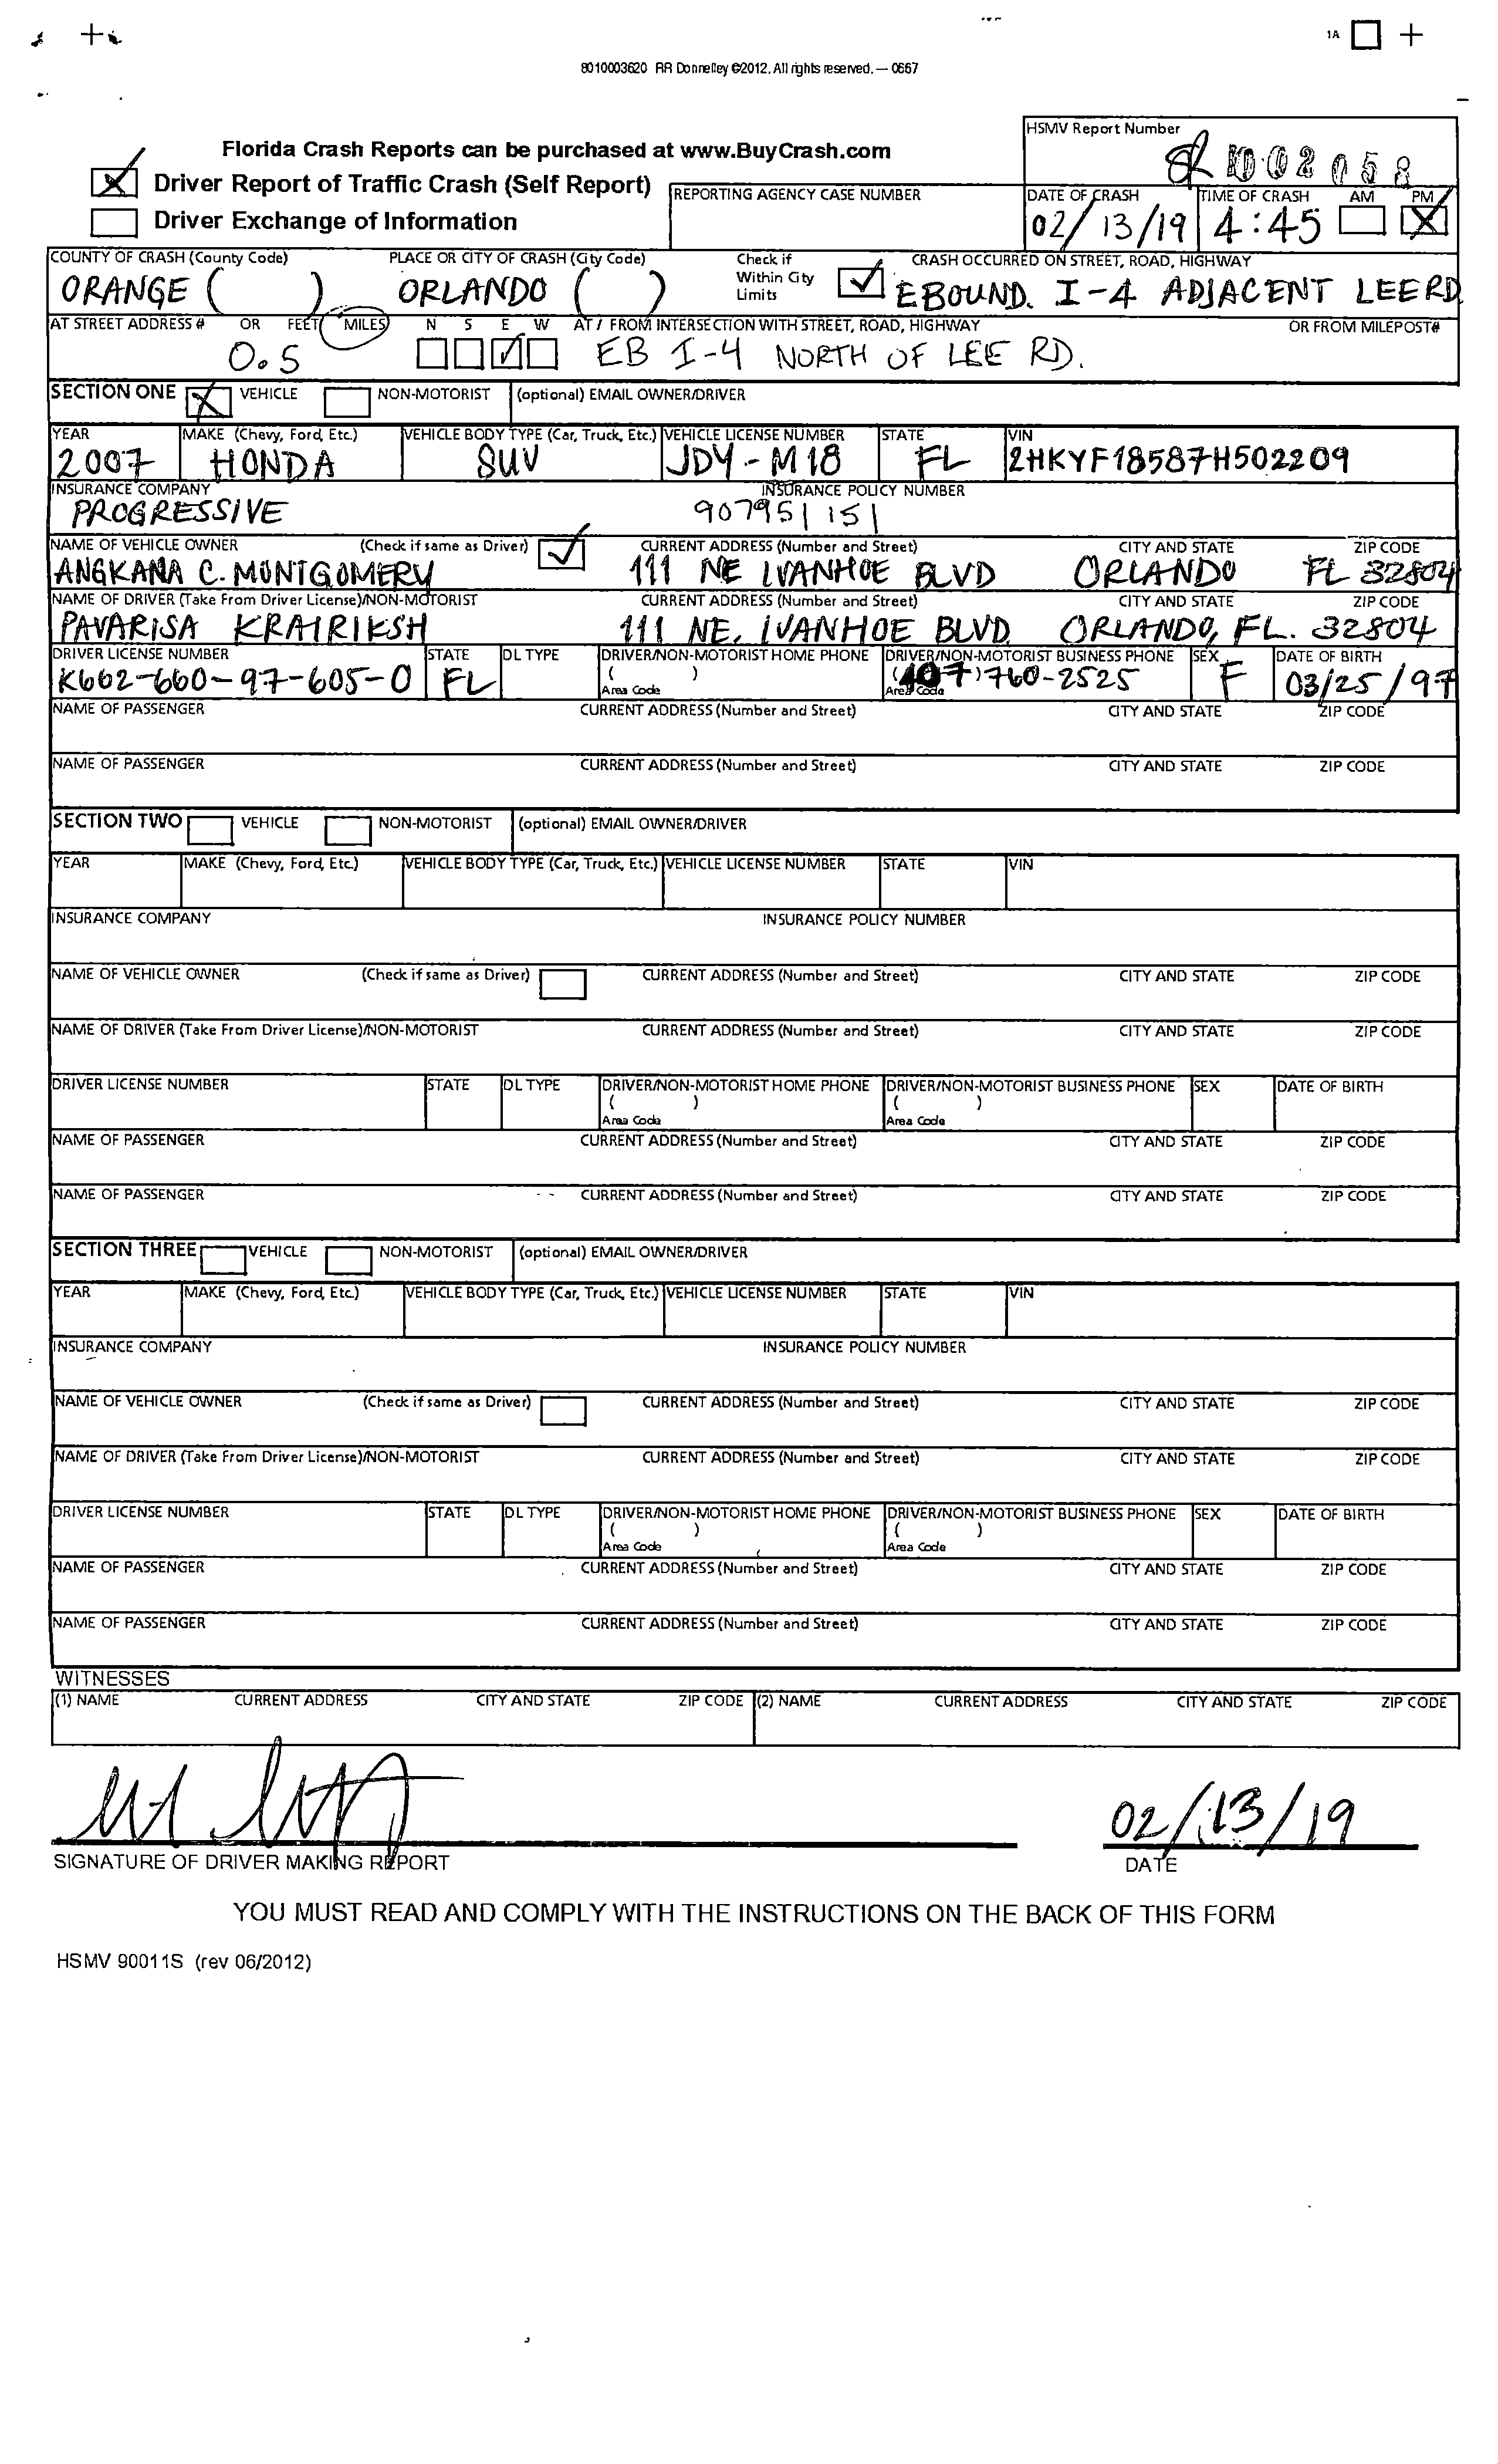 1A
8010003620 RR Donnelley ©2012. All rights reserved. — 0667
HSMV Report Number
Florida Crash Reports can be purchased at www.BuyCrash.com
Driver Report of Traffic Crash (Self Report)
Driver Exchange of Information
REPORTING AGENCY CASE NUMBER
DATE OF CRASH TIME OF CRASH AM PM
02/13/19 4:45
COUNTY OF CRASH (County Code) PLACE OR CITY OF CRASH (City Code) Check if Within City Limits CRASH OCCURRED ON STREET, ROAD, HIGHWAY
ORANGE ( ) ORLANDO ( ) EBOUND. I-4 ADJACENT LEE RD
AT STREET ADDRESS # OR FEET MILES N S E W AT / FROM INTERSECTION WITH STREET, ROAD, HIGHWAY OR FROM MILEPOST#
0.5 EB I-4 NORTH OF LEE RD.
SECTION ONE VEHICLE NON-MOTORIST (optional) EMAIL OWNER/DRIVER
YEAR MAKE (Chevy, Ford, Etc.) VEHICLE BODY TYPE (Car, Truck, Etc.) VEHICLE LICENSE NUMBER STATE VIN
2007 HONDA SUV JDY-M18 FL 2HKYF18587H502209
INSURANCE COMPANY INSURANCE POLICY NUMBER
PROGRESSIVE 907951151
NAME OF VEHICLE OWNER (Check if same as Driver) CURRENT ADDRESS (Number and Street) CITY AND STATE ZIP CODE
ANGKANA C. MONTGOMERY 111 NE IVANHOE BLVD ORLANDO FL 32804
NAME OF DRIVER (Take From Driver License)/NON-MOTORIST CURRENT ADDRESS (Number and Street) CITY AND STATE ZIP CODE
PAVARISA KRAIRIKSH 111 NE. IVANHOE BLVD ORLANDO, FL. 32804
DRIVER LICENSE NUMBER STATE DL TYPE DRIVER/NON-MOTORIST HOME PHONE DRIVER/NON-MOTORIST BUSINESS PHONE SEX DATE OF BIRTH
K662-660-97-605-0 FL ( ) Area Code (407) 760-2525 Area Code F 03/25/97
NAME OF PASSENGER CURRENT ADDRESS (Number and Street) CITY AND STATE ZIP CODE
NAME OF PASSENGER CURRENT ADDRESS (Number and Street) CITY AND STATE ZIP CODE
SECTION TWO VEHICLE NON-MOTORIST (optional) EMAIL OWNER/DRIVER
YEAR MAKE (Chevy, Ford, Etc.) VEHICLE BODY TYPE (Car, Truck, Etc.) VEHICLE LICENSE NUMBER STATE VIN
INSURANCE COMPANY INSURANCE POLICY NUMBER
NAME OF VEHICLE OWNER (Check if same as Driver) CURRENT ADDRESS (Number and Street) CITY AND STATE ZIP CODE
NAME OF DRIVER (Take From Driver License)/NON-MOTORIST CURRENT ADDRESS (Number and Street) CITY AND STATE ZIP CODE
DRIVER LICENSE NUMBER STATE DL TYPE DRIVER/NON-MOTORIST HOME PHONE DRIVER/NON-MOTORIST BUSINESS PHONE SEX DATE OF BIRTH
( ) ( )
Area Code Area Code
NAME OF PASSENGER CURRENT ADDRESS (Number and Street) CITY AND STATE ZIP CODE
NAME OF PASSENGER CURRENT ADDRESS (Number and Street) CITY AND STATE ZIP CODE
SECTION THREE VEHICLE NON-MOTORIST (optional) EMAIL OWNER/DRIVER
YEAR MAKE (Chevy, Ford, Etc.) VEHICLE BODY TYPE (Car, Truck, Etc.) VEHICLE LICENSE NUMBER STATE VIN
INSURANCE COMPANY INSURANCE POLICY NUMBER
NAME OF VEHICLE OWNER (Check if same as Driver) CURRENT ADDRESS (Number and Street) CITY AND STATE ZIP CODE
NAME OF DRIVER (Take From Driver License)/NON-MOTORIST CURRENT ADDRESS (Number and Street) CITY AND STATE ZIP CODE
DRIVER LICENSE NUMBER STATE DL TYPE DRIVER/NON-MOTORIST HOME PHONE DRIVER/NON-MOTORIST BUSINESS PHONE SEX DATE OF BIRTH
( ) ( )
Area Code Area Code
NAME OF PASSENGER CURRENT ADDRESS (Number and Street) CITY AND STATE ZIP CODE
NAME OF PASSENGER CURRENT ADDRESS (Number and Street) CITY AND STATE ZIP CODE
WITNESSES
(1) NAME CURRENT ADDRESS CITY AND STATE ZIP CODE (2) NAME CURRENT ADDRESS CITY AND STATE ZIP CODE
02/13/19
SIGNATURE OF DRIVER MAKING REPORT DATE
YOU MUST READ AND COMPLY WITH THE INSTRUCTIONS ON THE BACK OF THIS FORM
HSMV 90011S (rev 06/2012)